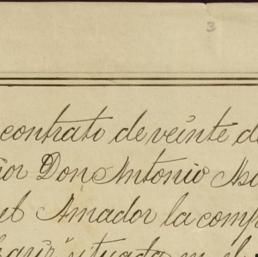 3
contrato de veinte de
Don Antonio
Amador la comp
situada en el